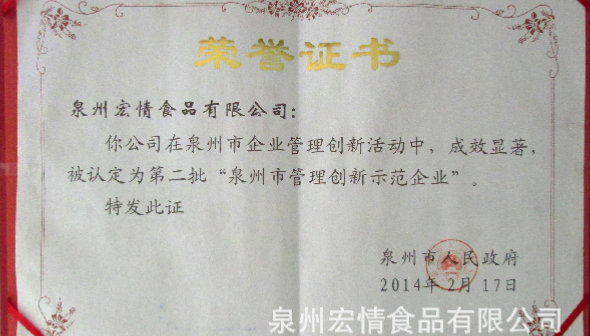 荣誉证书
泉州宏情食品有限公司：
你公司在泉州市企业管理创新活动中，成效显著，
被认定为第二批“泉州市管理创新示范企业”。
特发此证
泉州市人民政府
2014年2月17日
泉州宏情食品有限公司